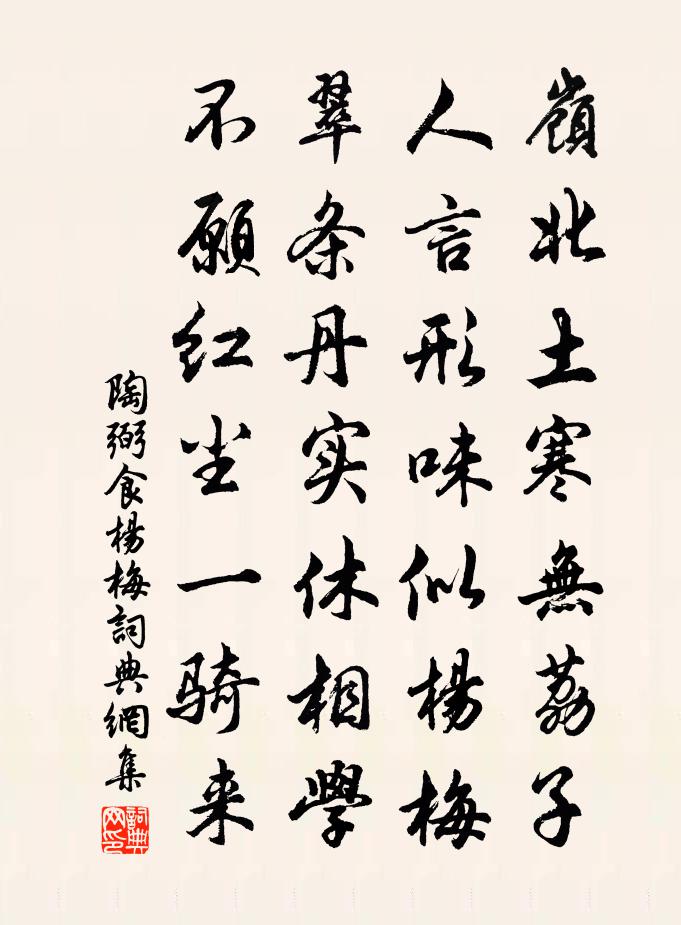 嶺北土寒無荔子
人言形味似楊梅
翠条丹实休相學
不願红尘一骑来
陶弼食楊梅詞典網集
詞典网印